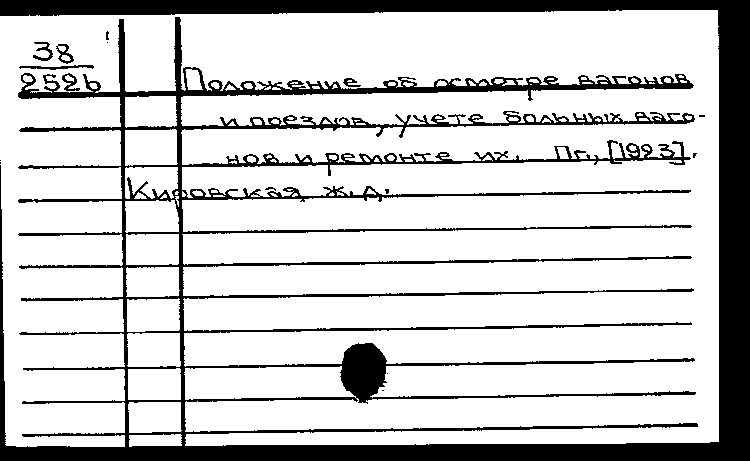 38
2526
Положение об осмотре вагонов
и поездов, учете больных ваго-
нов и ремонте их. Пг., [1923].
Кировская ж.д.